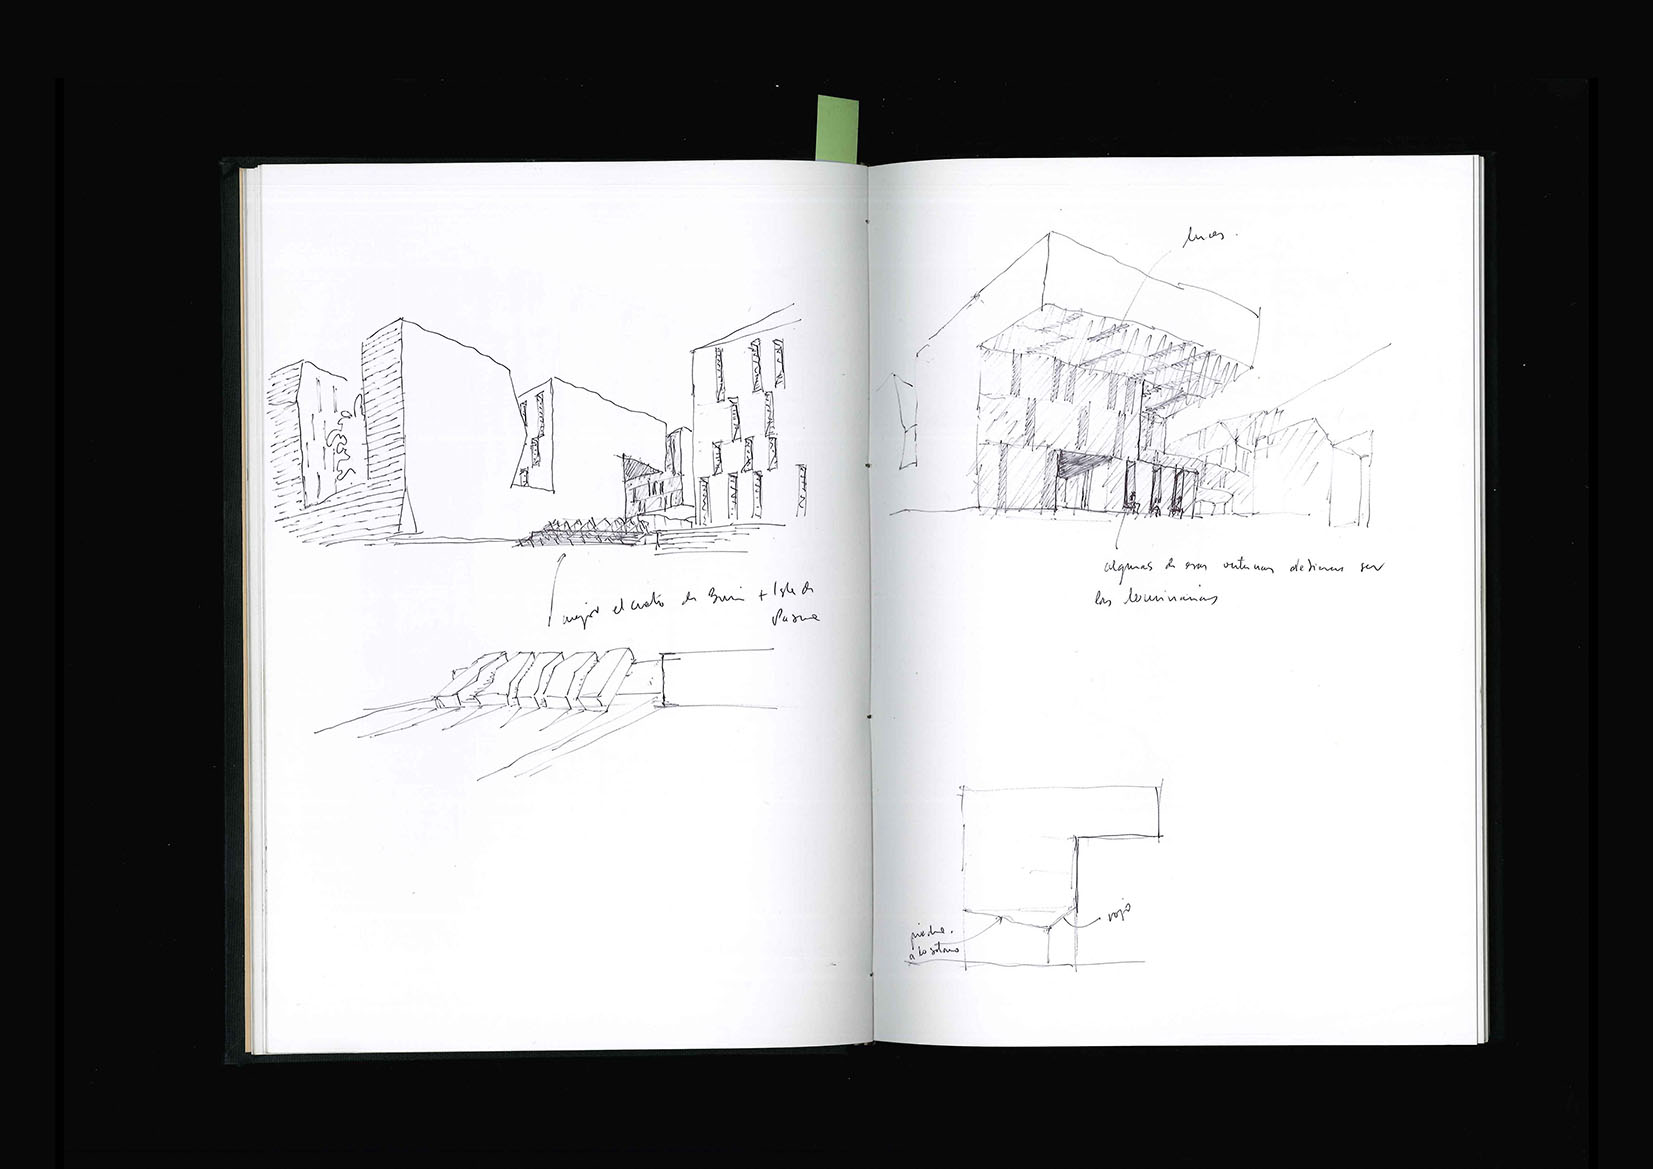 mejor el cuatro de + Isla de
Pascua
luces.
algunas de esas ventanas debieran ser
las luminarias
piedra.
a lo sotano
rojo